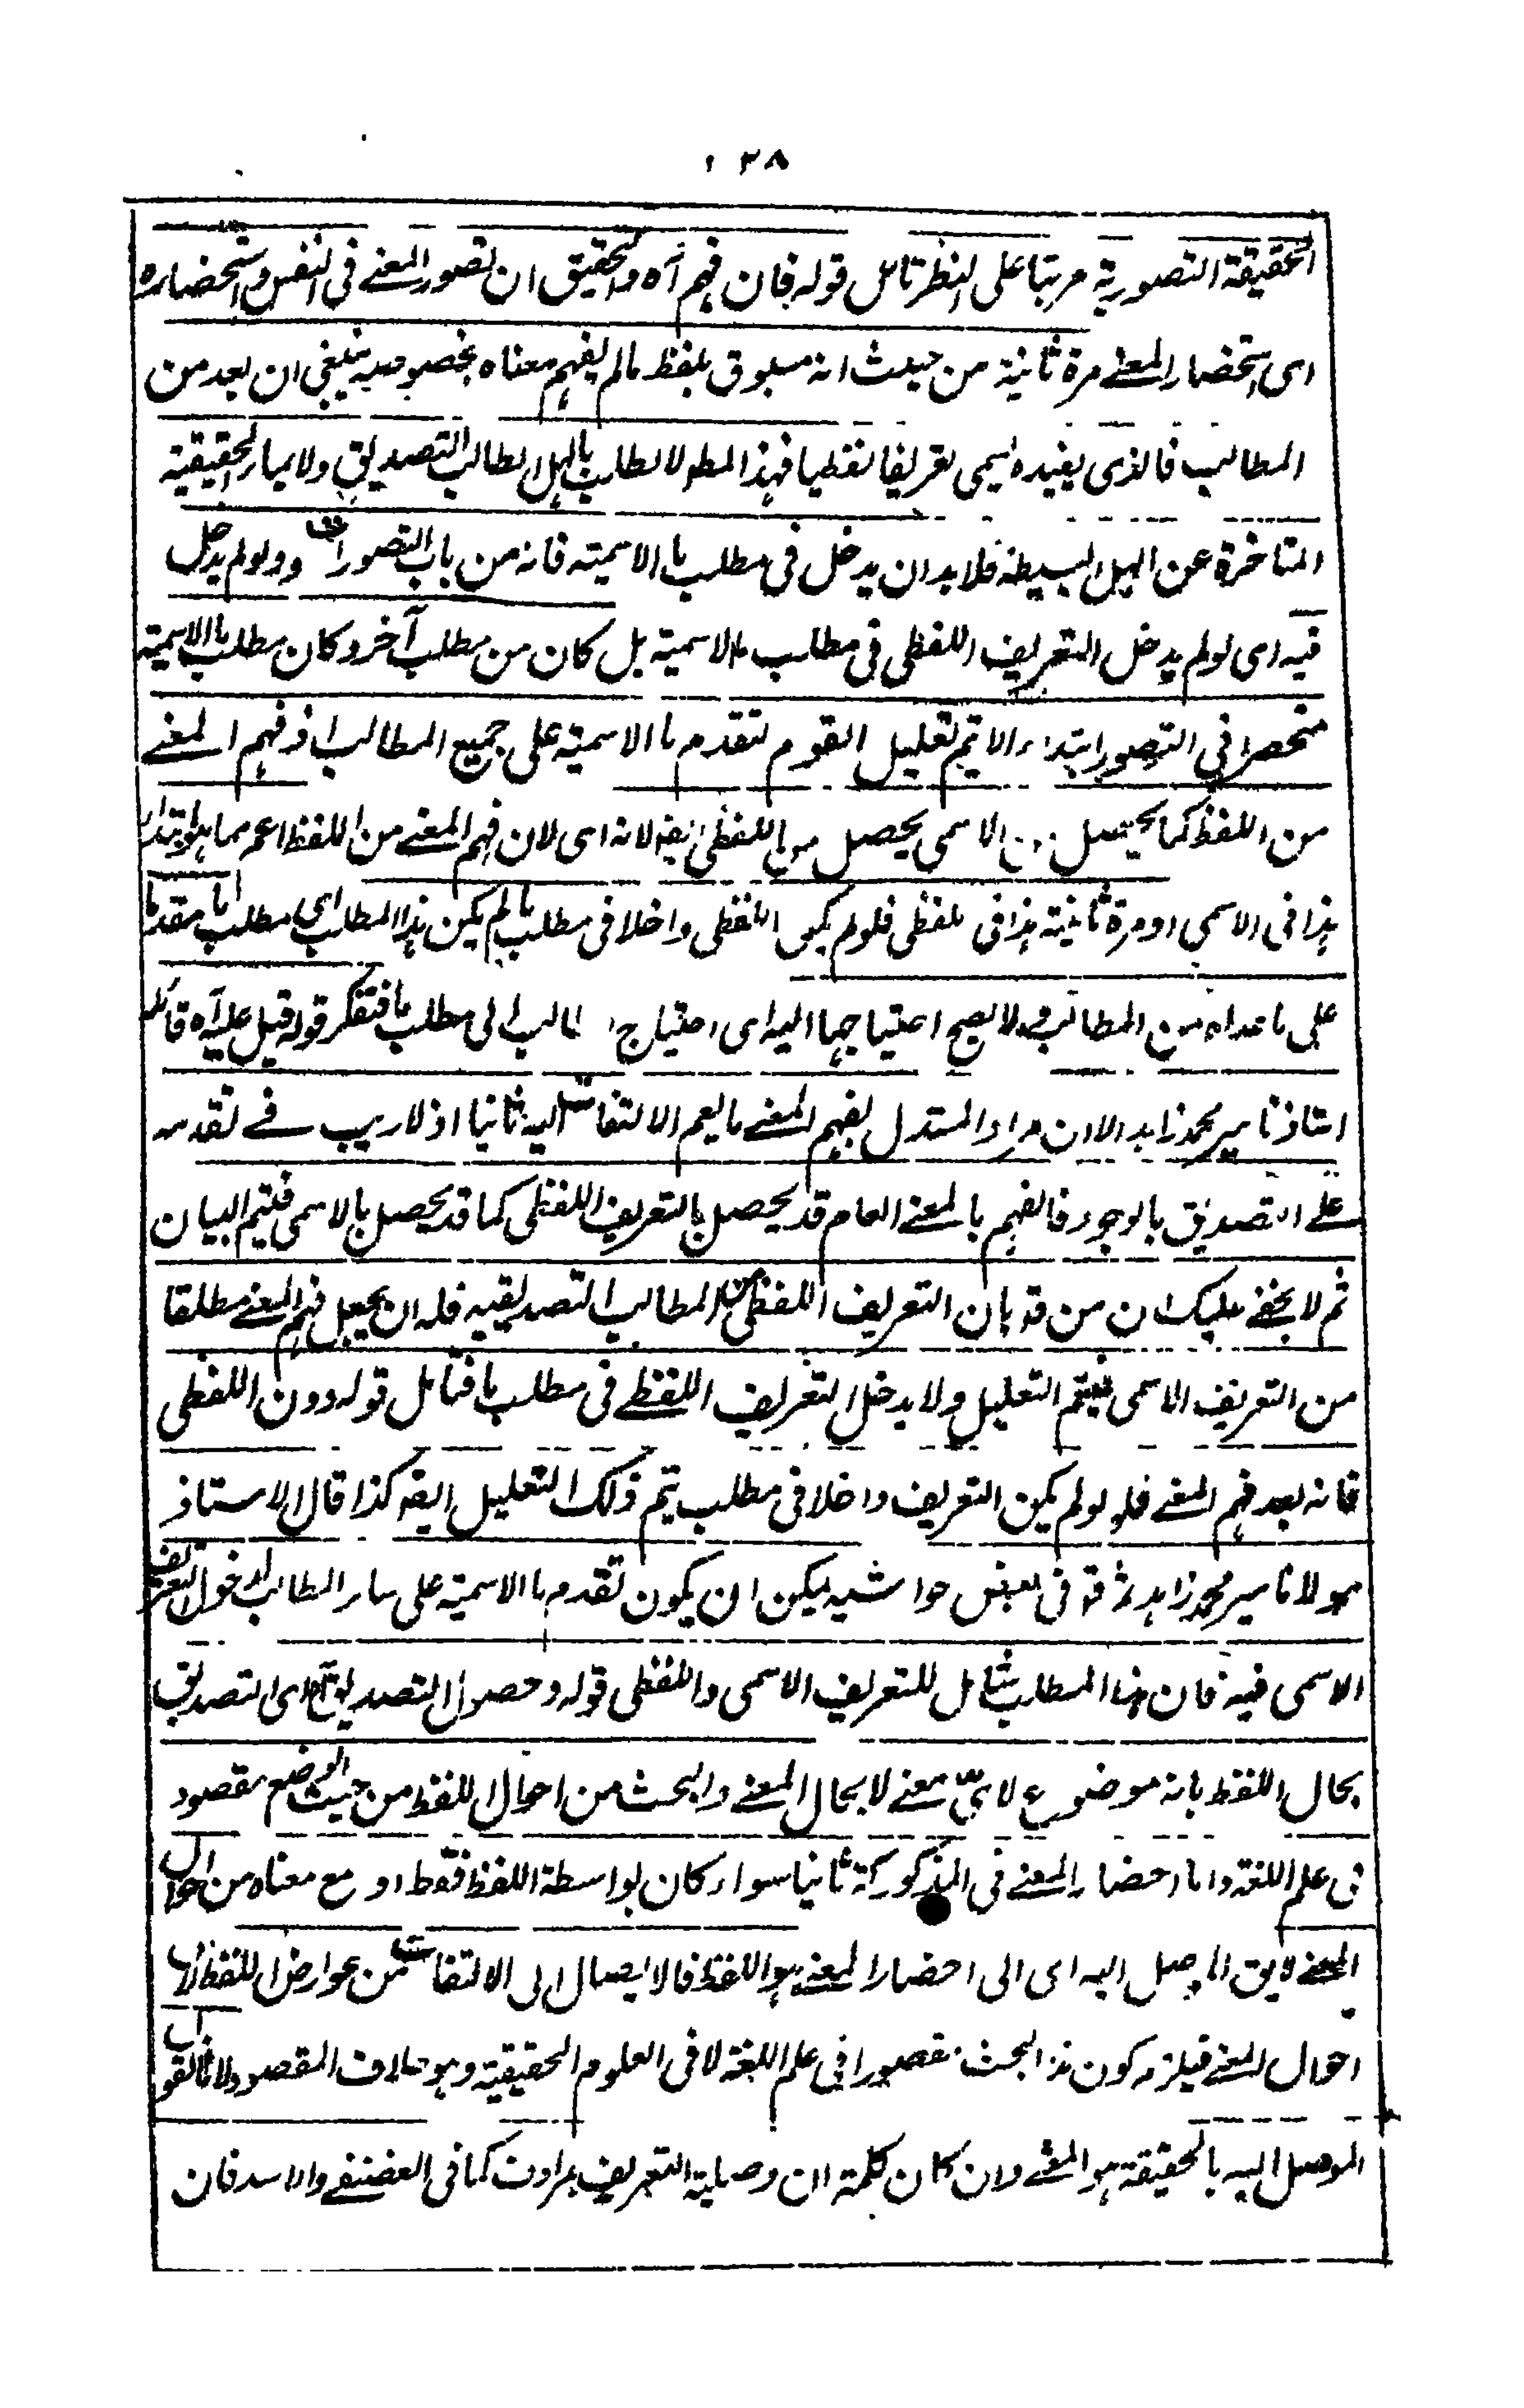 ٢٨
الحقيقة التصورية مرتبا على النظر تامل قوله فان فهم آه والتحقيق ان تصور المعنے فى النفس واستحضاره
اى استحضار المعنے مرة ثانية من حيث انه مسبوق بلفظ مالم يفهم معناه بخصوصه ينبغى ان يعد من
المطالب فالذى يفيده يسمى تعريفا لفظيا فهذا المط لا يطلب بالهل لطالب التصديق ولا بما الحقيقية
المتاخرة عن الهل البسيطة فلا بد ان يدخل فى مطلب ما الاسمية فانه من باب التصورات ولو لم يدخل
فيه اى لو لم يدخل التعريف اللفظى فى مطلب ما الاسمية بل كان من مطلب آخر وكان مطلب ما الاسمية
منحصرا فى التصور ابتداء لا يتم تعليل القوم لتقدم ما الاسمية على جميع المطالب اذ فهم المعنے
من اللفظ كما يحصل من الاسمى يحصل من اللفظى ايضا لانه اى لان فهم المعنے من اللفظ اعم مما هو ابتداء
هذا فى الاسمى او مرة ثانية هذا فى اللفظى فلو لم يكن اللفظى داخلا فى مطلب ما لم يكن هذا المطلب اى مطلب ما مقدما
على ما عداه من المطالب ولا يصح احتياجها اليه اى احتياج المطالب الى مطلب ما فتفكر قوله قيل عليه آه قائله
استاذنا مير محمد زاهد الا ان مراد المستدل بفهم المعنے ما يعم الالتفات اليه ثانيا اذ لا ريب فے تقدمه
علے التصديق بالوجود فالفهم بالمعنے العام قد يحصل بالتعريف اللفظى كما قد يحصل بالاسمى فيتم البيان
ثم لا يخفے عليك ان من قال بان التعريف اللفظى من المطالب التصديقيه فله ان يجعل فهم المعنے مطلقا
من التعريف الاسمى فيتم التعليل ولا يدخل التعريف اللفظے فى مطلب ما فتامل قوله دون اللفظى
فانه بعد فهم المعنے فلو لم يكن التعريف داخلا فى مطلب يتم ذلك التعليل ايضه كذا قال الاستاذ
مولانا مير محمد زاهد فى بعض حواشيه ليكن ان يكون تقدم ما الاسمية على سائر المطالب لدخول التعريف
الاسمى فيه فان هذا المطلب شامل للتعريف الاسمى واللفظى قوله وحصول التصديق آه اى التصديق
بحال اللفظ بانه موضوع لاىّ معنے لا بحال المعنے والبحث من احوال اللفظ من حيث الوضع مقصود
فى علم اللغة واما احضار المعنے فى المدركة ثانيا سواء كان بواسطة اللفظ فقط او مع معناه من احوال
المعنے لا يق الموصل اليه اى الى احضار المعنے هو اللفظ فالايصال الى الالتفات من عوارض اللفظ لا من
احوال المعنے فيلزم كون هذا البحث مقصورا فى علم اللغة لا فى العلوم الحقيقية وهو خلاف المقصود لانا نقول
الموصل اليه بالحقيقة هو المعنے وان كان كلمة ان وصلية التعريف بمرادف كما فى الغضنفر والاسد فان